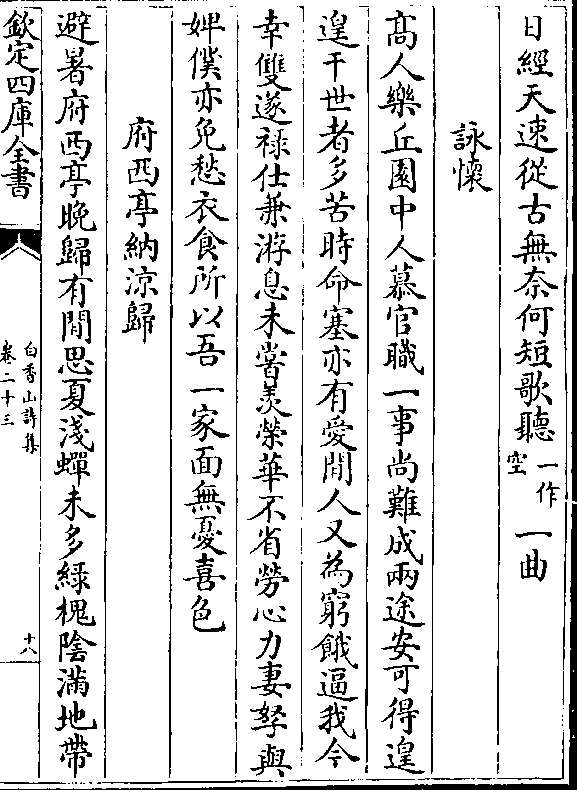 日經天速從古無奈何短歌聽一作空一曲
詠懷
髙人樂丘園中人慕官職一事尚難成兩途安可得遑
遑干世者多苦時命塞亦有愛閒人又為窮餓逼我今
幸雙遂禄仕兼游息未嘗羨榮華不省勞心力妻孥與
婢僕亦免愁衣食所以吾一家面無憂喜色
府西亭納涼歸
避暑府西亭晚歸有閒思夏淺蟬未多緑槐陰滿地帶
欽定四庫全書
白香山詩集
卷二十三
十八